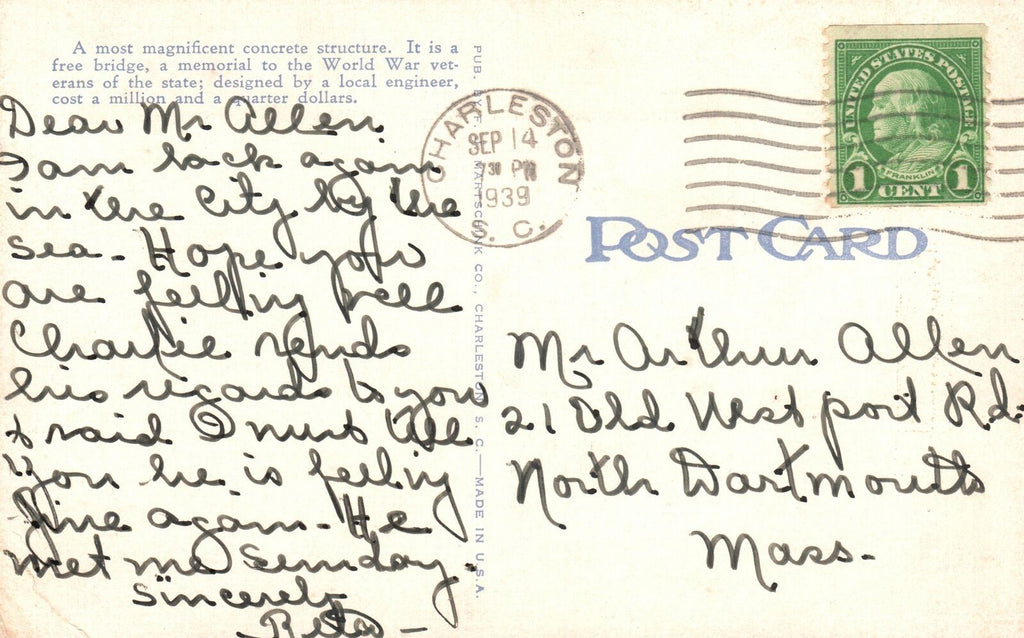 A most magnificent concrete structure. It is a
free bridge, a memorial to the World War vet-
erans of the state; designed by a local engineer,
cost a million and a quarter dollars.
Dear Mr Allen
I am back again
in the City by the
sea. Hope you
are feeling well
Charlie sends
his regards to you
& said I must tell
you he is feeling
fine again - He
met me Sunday.
Sincerely
Rita -
PUB. BY
CO., CHARLESTON, S. C.—MADE IN U.S.A.
CHARLESTON
SEP 14
30 PM
1939
S. C.
UNITED STATES POSTAGE
FRANKLIN
1 CENT 1
POST CARD
Mr Arthur Allen
21 Old Westport Rd.
North Dartmouth
Mass.